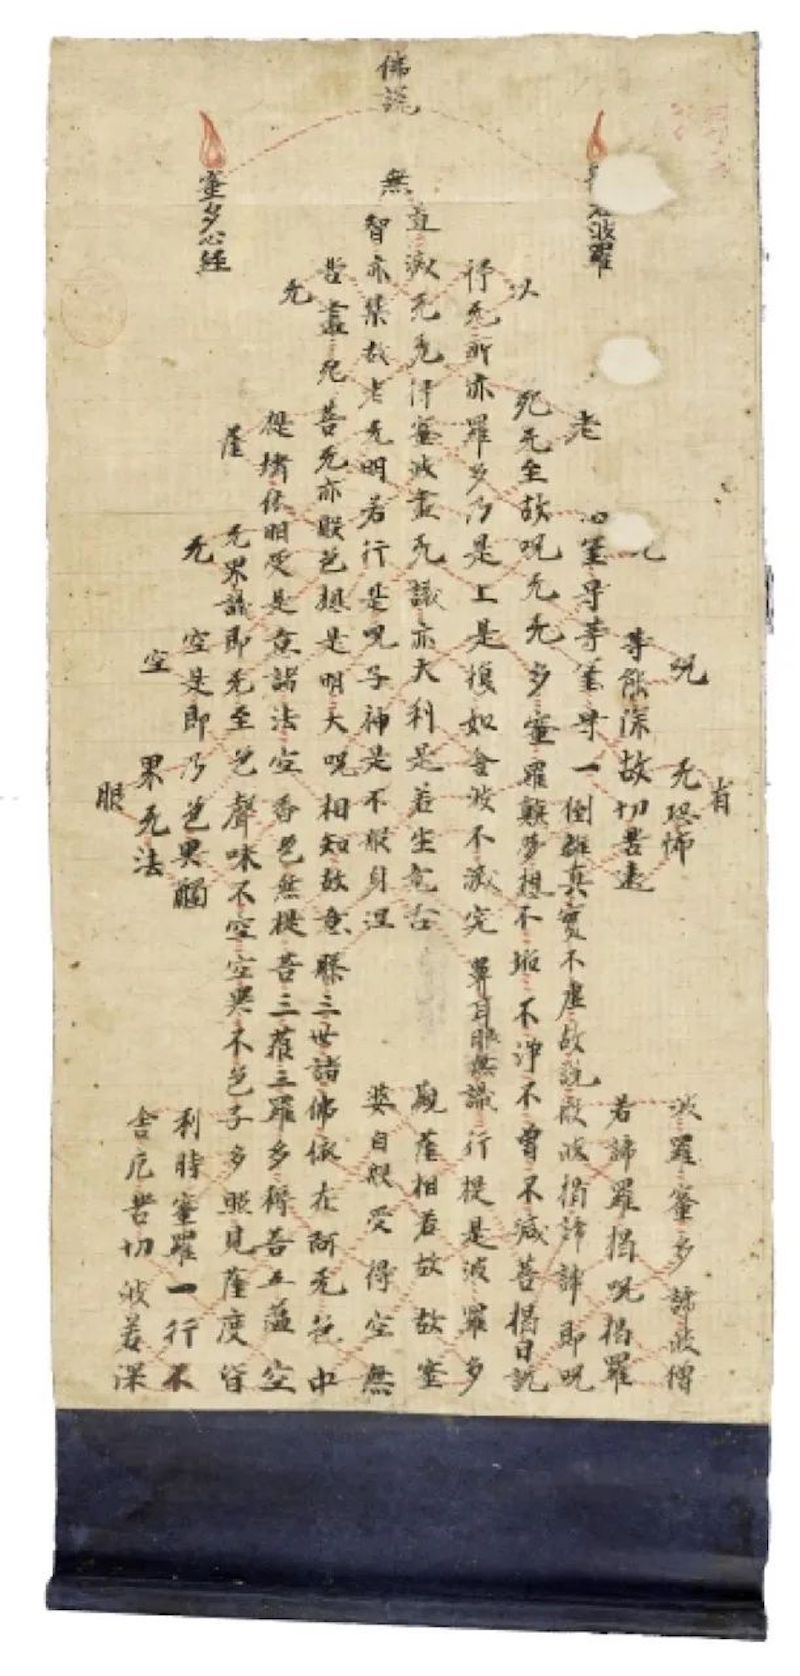 佛說
波羅
蜜多心經
有
呪
无恐怖
波羅蜜多諦薩僧
等能深故切苦遠
若諦羅揭呪揭羅
老
蜜㝵等蜜㝵一倒離真實不虛故說般波揭諦諦即呪
以
死无至故呪无无多蜜羅顛夢想不垢不淨不曾不減菩揭曰說
得无所亦羅多乃是上是復如舍波不滅究鼻耳眼無識行提是波羅多
道滅无无得蜜減盡无識亦大利是若生竟舍
觀薩相若故故蜜
無智亦集故老无明若行是呪子神是不般自涅
婆自般受得空無
苦盡死菩无亦般色想是明大呪相知故意
三世諸佛依在阿无色中
无
提埵依明受是意諸法空香色無提菩三藐三羅多得菩五蘊空
薩
无界識即无至色聲味不空空異不色子多照見薩度皆
无
空是即乃色異觸
利時蜜羅一行不
空
界无法
舍厄苦切般若深
眼